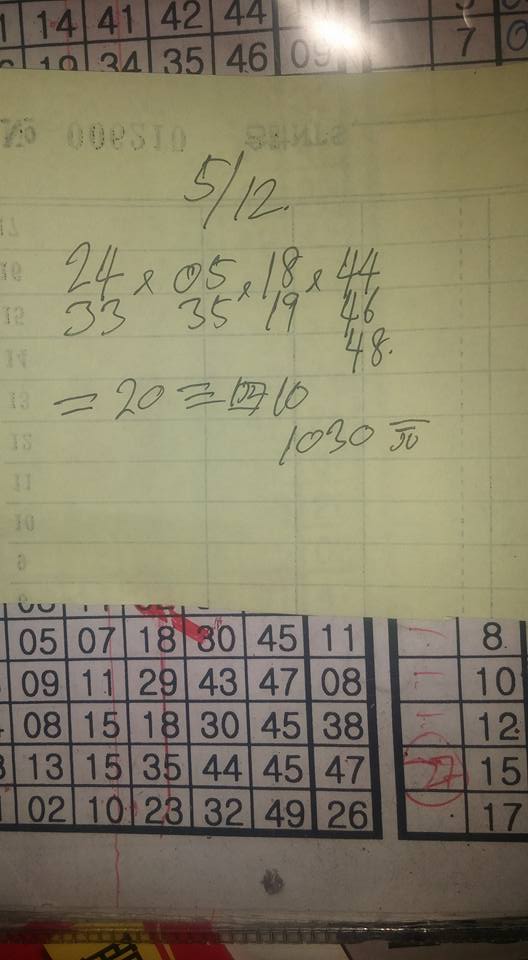 14 41 42 44 10
34 35 46 09
7
№ 006210
5/12.
24 × 05 × 18 × 44
33 35 19 46
48.
= 20 = 10
1030
17
16
15
14
13
12
11
10
9
05 07 18 30 45 11 8
09 11 29 43 47 08 10
08 15 18 30 45 38 12
13 15 35 44 45 47 27 15
02 10 23 32 49 26 17